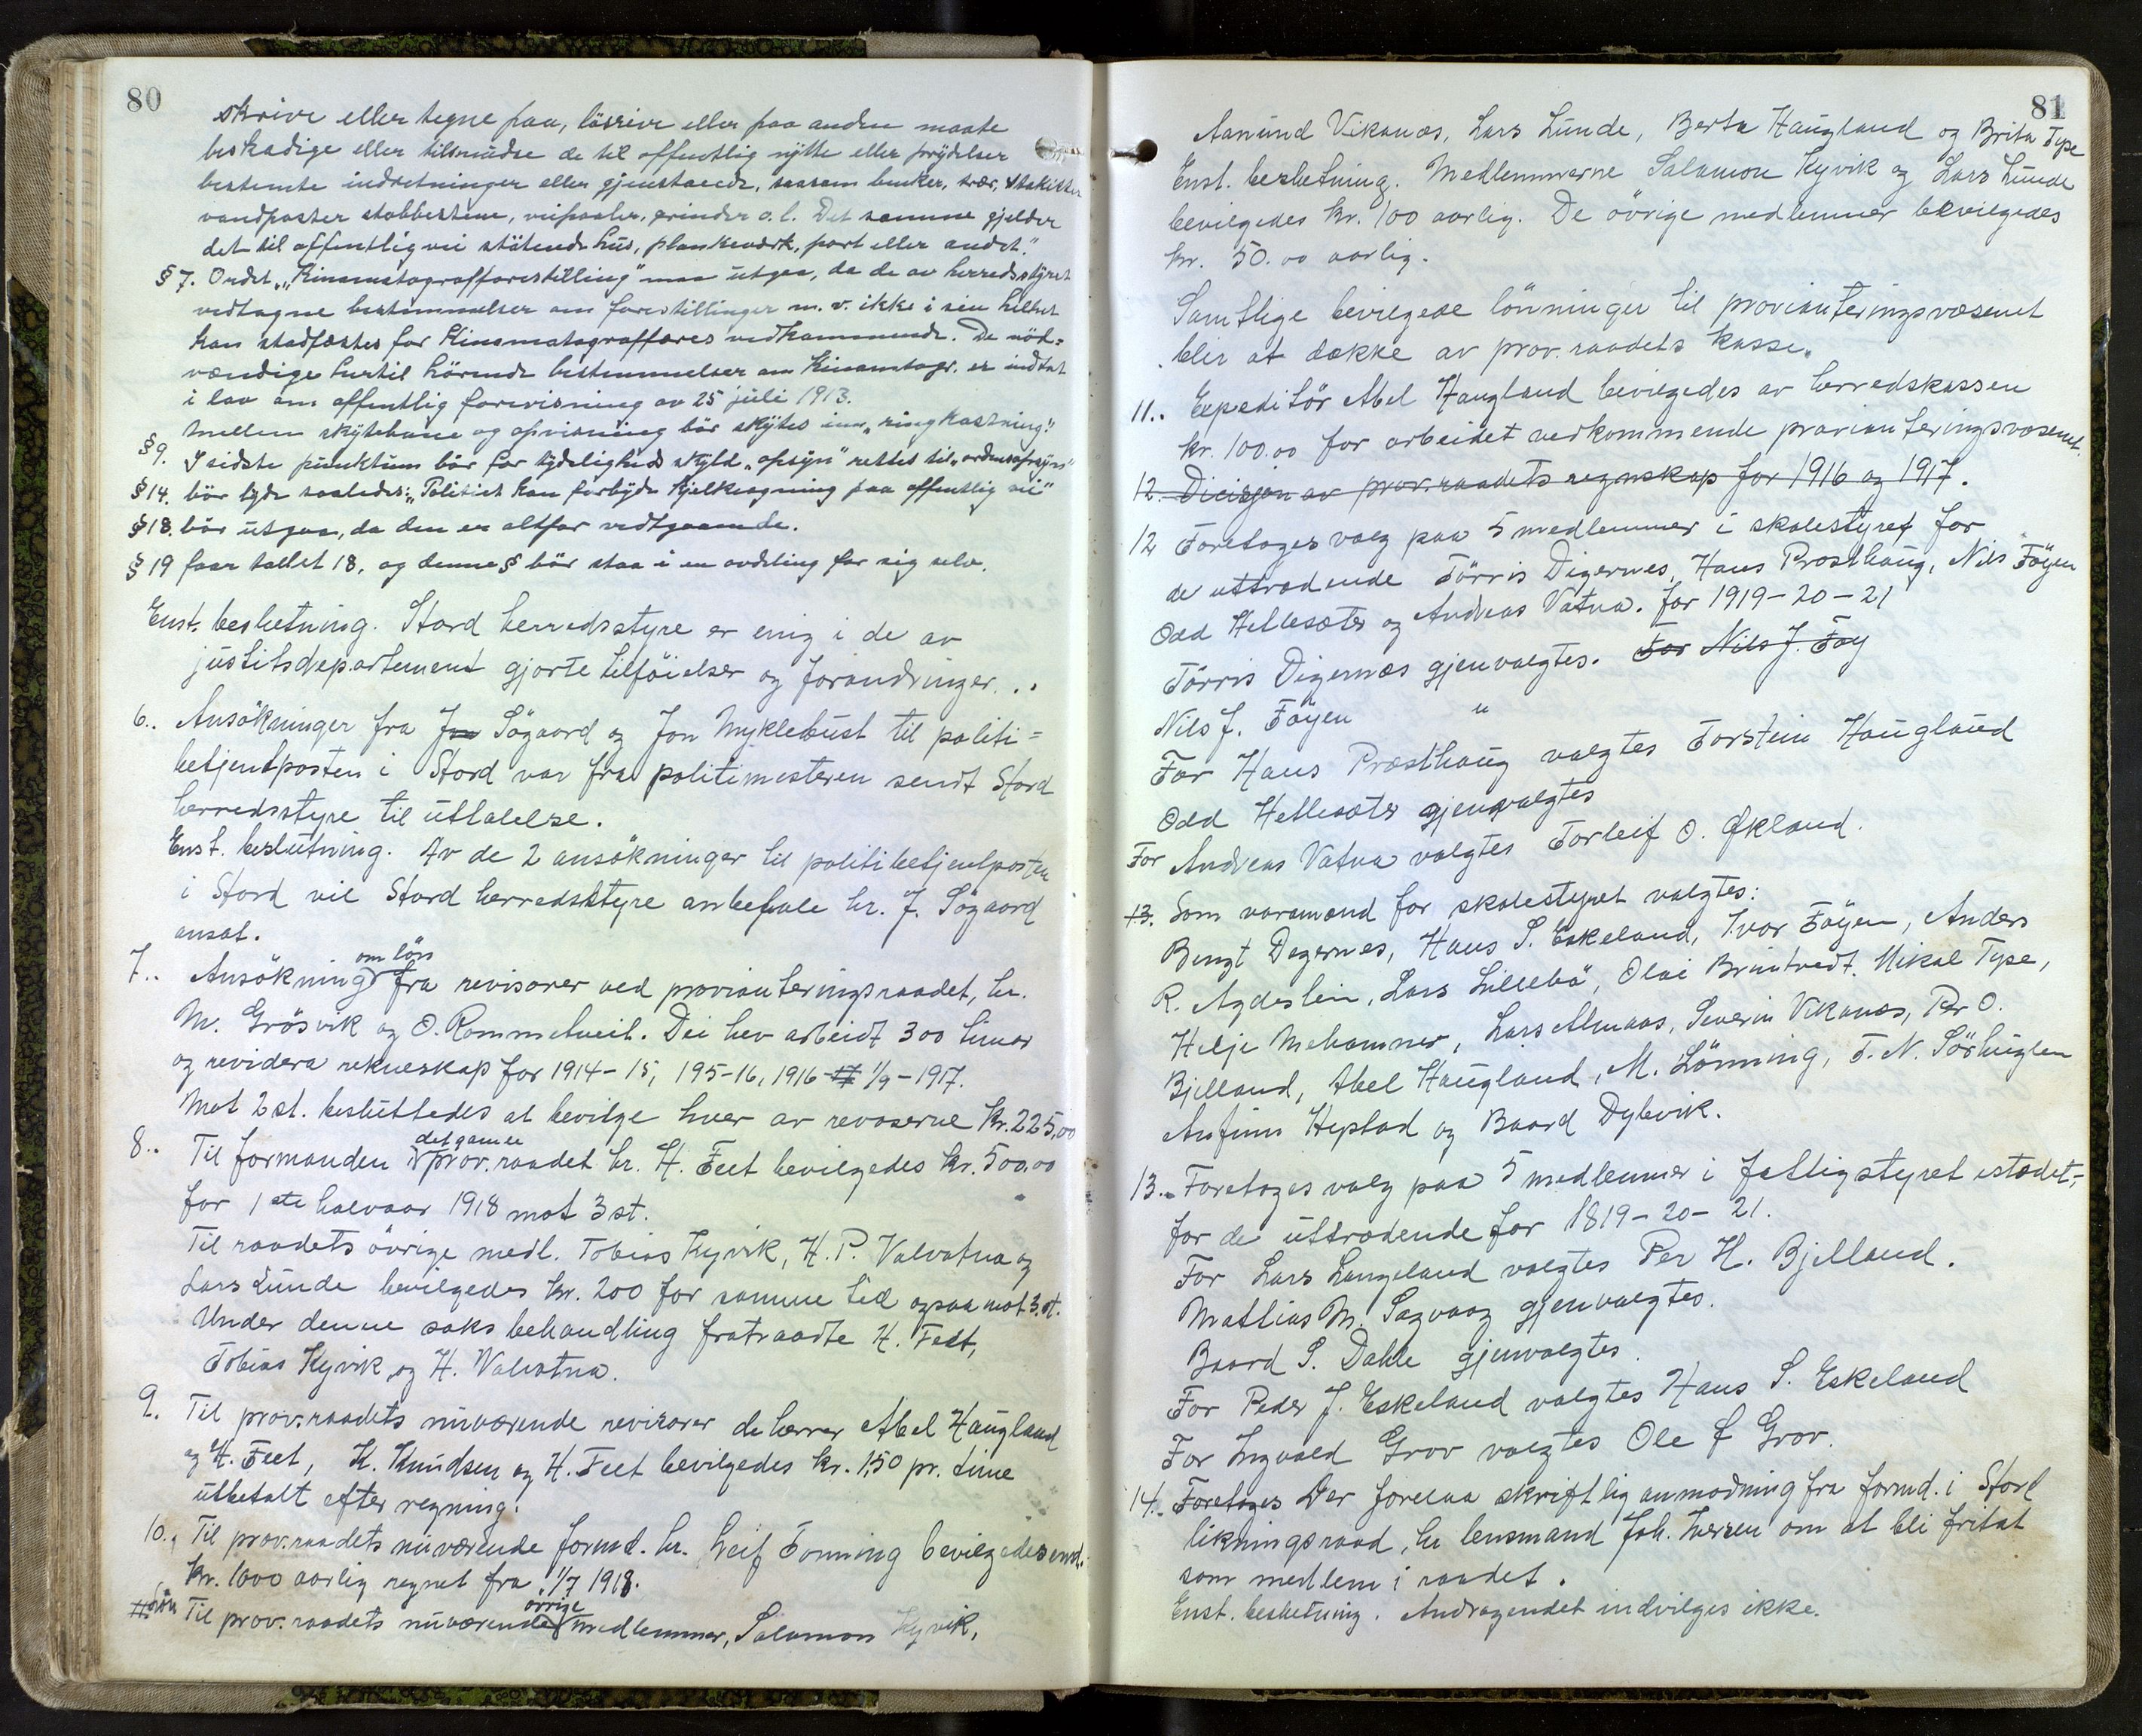 80
skrive eller tegne paa, løsrive eller paa anden maate
beskadige eller tilsmudse de til offentlig nytte eller prydelser
bestemte indretninger eller gjenstande, saasom benker, trær, stakitter
vandposter stabbestene, veipæler, grinder o.l. Det samme gjelder
det til offentlig vei støtende hus, plankeverk, port eller andet."
§ 7. Ordet "Kinematografforestilling" maa utgaa, da de av herredsstyret
vedtagne bestemmelser om forestillinger m.v. ikke i sin helhet
kan stadfæstes for Kinematografferes vedkommende. De nød=
vendige hertil hörende bestemmelser om Kinamtogr. er indtat
i lov om offentlig forevisning av 25 juli 1913.
Mellem skytebane og opvisning bör skytes inn "ringkastning".
§ 9. I sidste punktum bör for tydeligheds skyld "opsyn" rettes til "ordensopsyn"
§ 14. bör lyde saaledes: "Politiet kan forbyde kjelkeagning paa offentlig vei"
§ 18. bör utgaa, da den er altfor vedtgaaende.
§ 19 faar tallet 18, og denne § bör staa i en avdeling for sig selv.
Enst. beslutning. Stord herredsstyre er enig i de av
justitsdepartement gjorte tilföielser og forandringer..
6.. Ansökninger fra Jon Sögaard og Jon Myklebust til politi=
betjentposten i Stord var fra politimesteren sendt Stord
herredsstyre til uttalelse.
Enst. beslutning. Av de 2 ansökninger til politibetjentposten
i Stord vil Stord herredsstyre anbefale hr. J. Sögaard
ansat.
7.. Ansökning om lön fra revisorer ved provianteringsraadet, hr.
M. Grösvik og O. Rommetveit. Dei hev arbeidt 300 timar
og revidera rekneskap for 1914-15, 195-16, 1916-17 1/9-1917.
Mot 2 st. besluttedes at bevilge hver av revoserne kr. 225,00
8.. Til formanden i det gamle prov.raadet hr. H. Feet bevilgedes kr. 500.00
for 1ste halvaar 1918 mot 3 st.
Til raadets övrige medl. Tobias Kyvik, H. P. Valvatna og
Lars Lunde bevilgedes kr. 200 for samme tid ogsaa mot 3 st.
Under denne saks behandling fratraadte H. Feet,
Tobias Kyvik og H. Valvatna.
9. Til prov.raadets nuværende revisorer de herrer Abel Haugland
og H. Feet, K. Knudsen og H. Feet bevilgedes kr. 1,50 pr. time
utbetalt efter regning.
10., Til prov.raadets nuværende formd. hr. Leif Fonning bevilgedes enst.
kr. 1000 aarlig regnet fra 1/7 1918.
11. Til prov. raadets nuværende övrige medlemmer, Salomon Kyvik,
81
Aanund Vikanes, Lars Lunde, Berta Haugland og Brita Tyse
Enst. beslutning. Medlemmerne Salamon Kyvik og Lars Lunde
bevilgedes kr. 100 aarlig. De övrige medlemmer bevilgedes
kr. 50.00 aarlig.
Samtlige bevilgede lönninger til provianteringsvæsenet
blir at dække av prov.raadets kasse.
11.. Expeditör Abel Haugland bevilgedes av herredskassen
kr. 100.00 for arbeidet vedkommende provianteringsvæsenet.
12. Dicisjon av prov.raadets regnskap for 1916 og 1917.
12 Foretoges valg paa 5 medlemmer i skolestyret for
de uttrædende Törris Digernes, Hans Prosthaug, Nils Föyen
Odd Hellesæter og Andreas Vatna. for 1919-20-21
Törris Digernæs gjenvalgtes. For Nils J. Föy
Nils J. Föyen "
For Hans Præsthaug valgtes Torstein Haugland
Odd Hellesæter gjenvalgtes
For Andreas Vatna valgtes Torleif O. Økland.
13. Som varamænd for skolestyret valgtes:
Bengt Degernes, Hans S. Eskeland, Ivar Föyen, Anders
R. Agdestein, Lars Lillebö, Olai Bruntvedt, Mikal Tyse,
Helje Mehammer, Lars Almaas, Severin Vikanes, Per O.
Bjelland, Abel Haugland, M. Lönning, T. N. Sörhuglen
Anfinn Hystad og Baard Dybvik.
13.. Foretoges valg paa 5 medlemmer i fattigstyret istædet,
for de uttrædende for 1819-20-21.
For Lars Langeland valgtes Per H. Bjelland.
Mattias M. Sagvaag gjenvalgtes.
Baard S. Dahle gjenvalgtes.
For Peder J. Eskeland valgtes Hans S. Eskeland
For Ingvald Grov valgtes Ole J Grov.
14.. Foretoges Der forelaa skriftlig anmodning fra formd. i Stord
likningsraad, hr lensmand Joh. Iversen om at bli fritat
som medlem i raadet.
Enst. beslutning. Andragendet indvilges ikke.